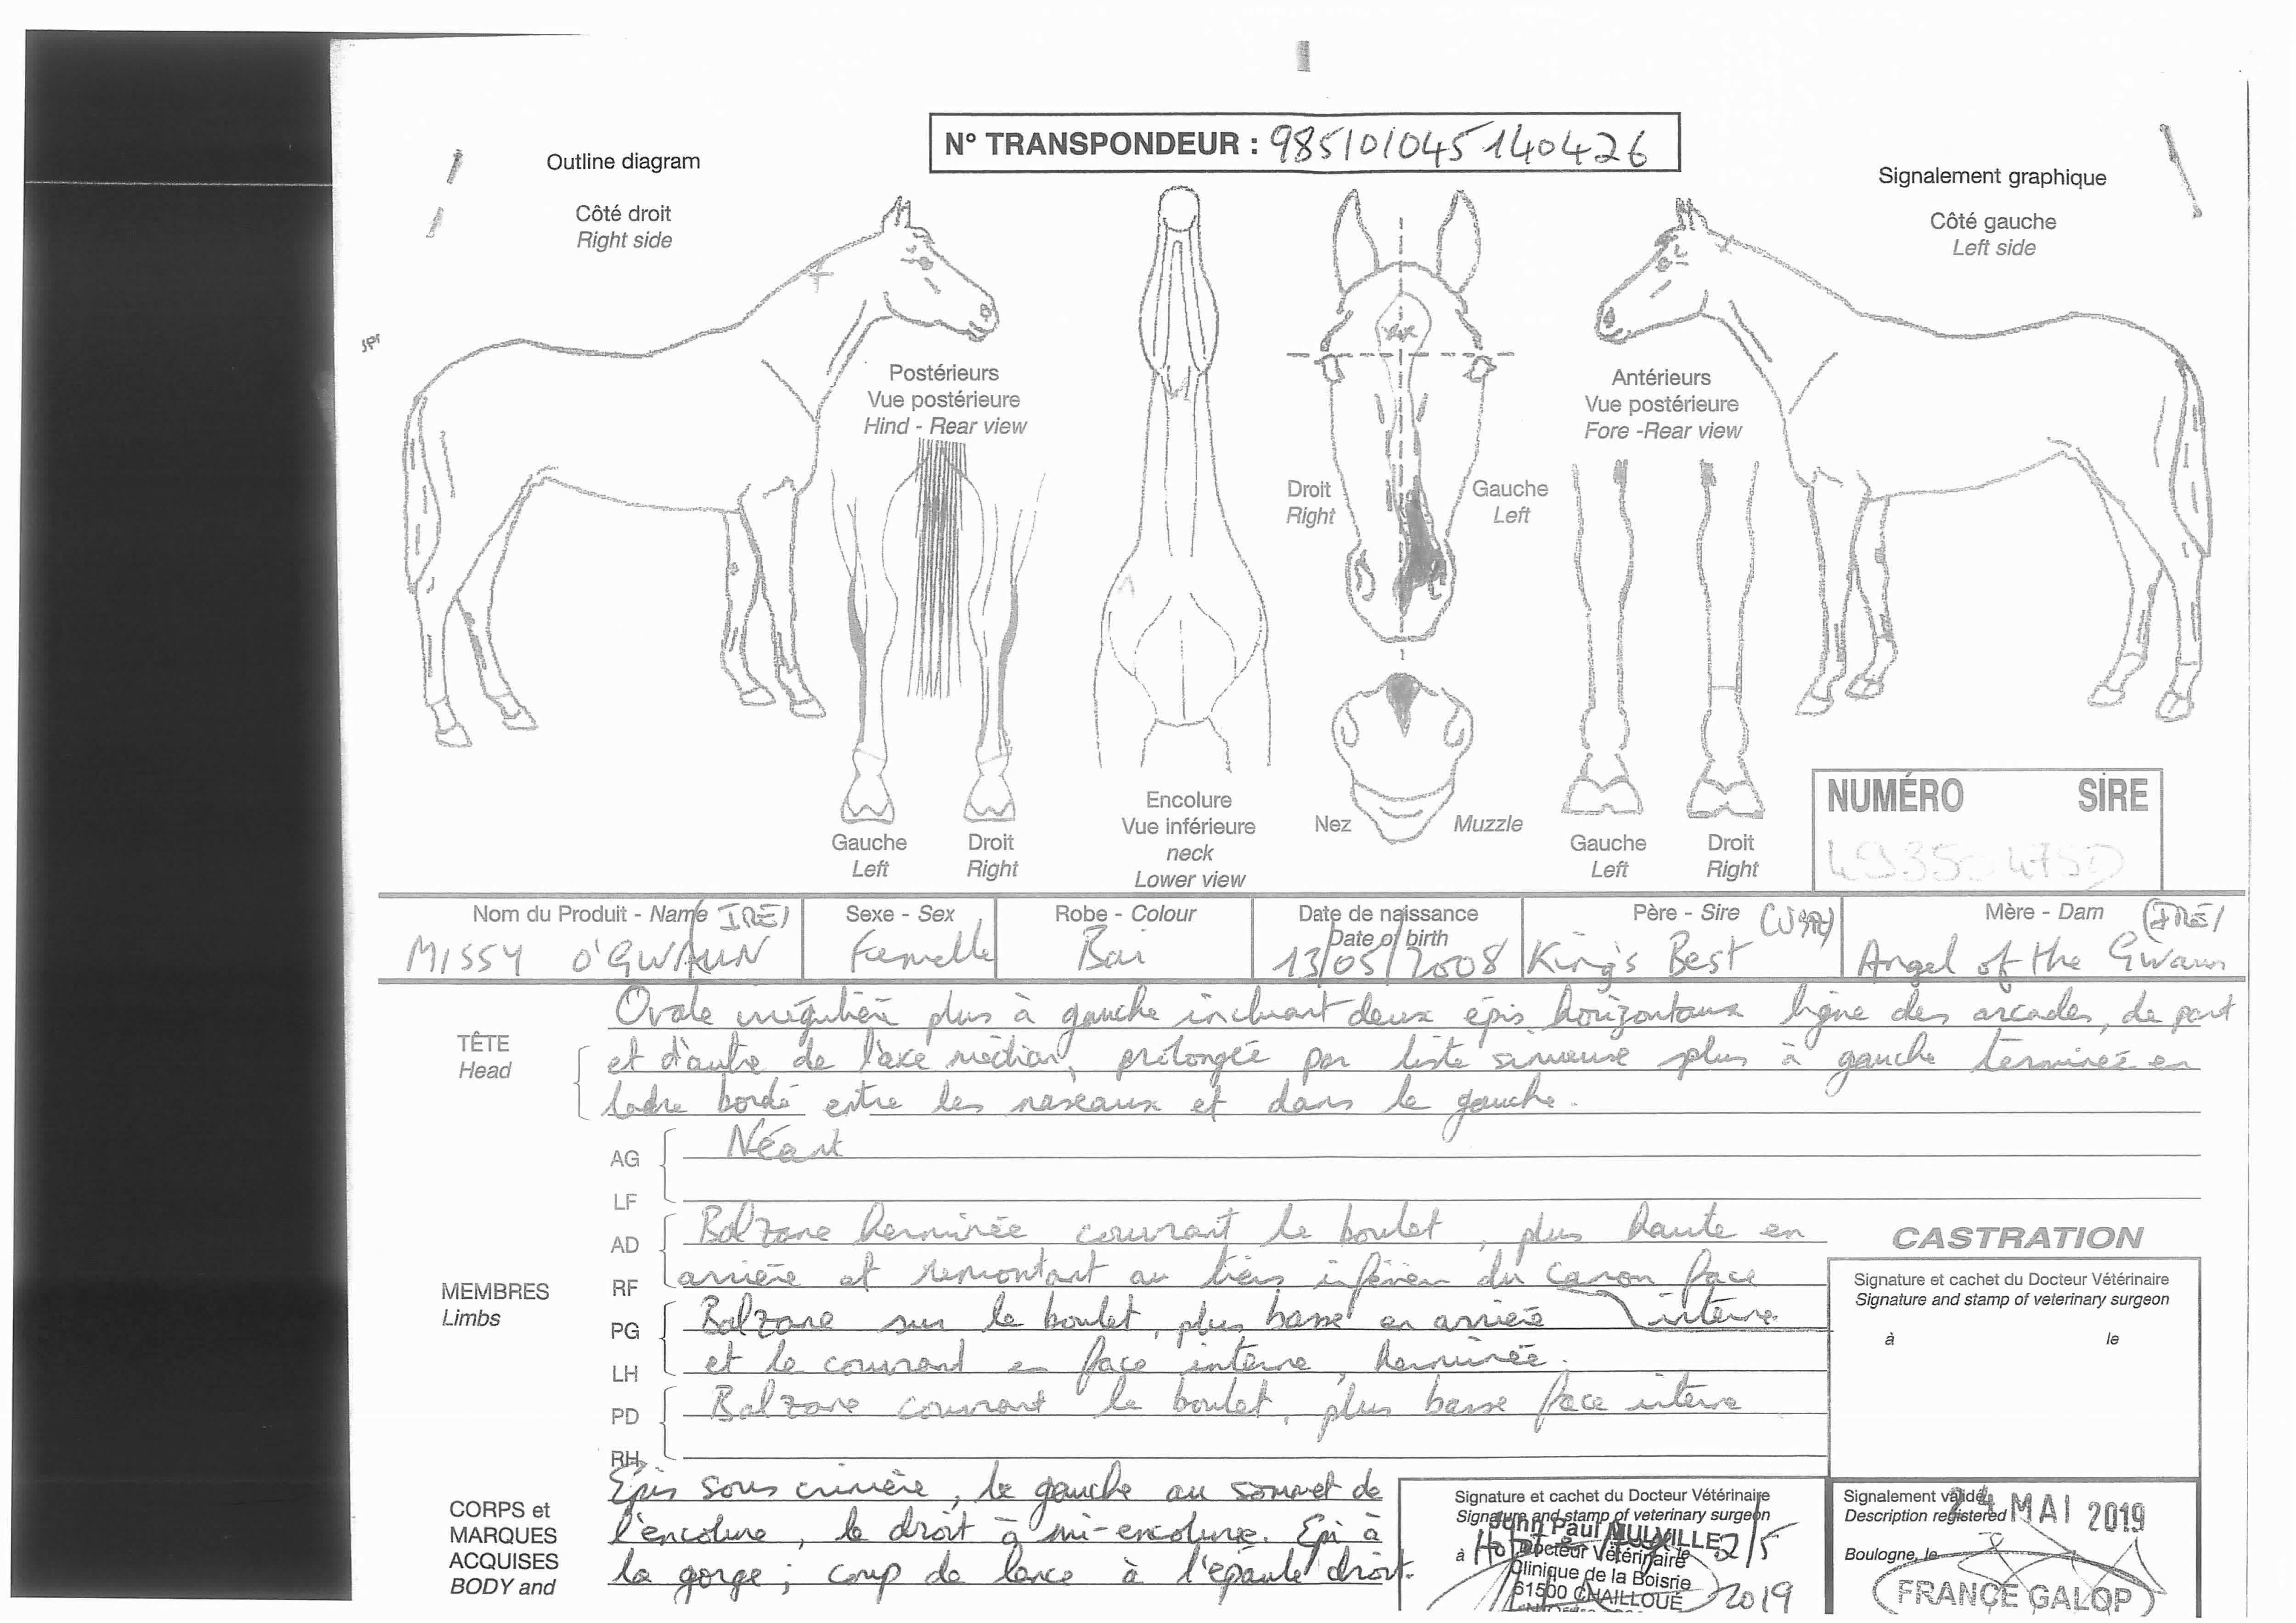 N° TRANSPONDEUR : 985101045140426
Outline diagram
Signalement graphique
Côté droit
Right side
Côté gauche
Left side
Postérieurs
Vue postérieure
Hind - Rear view
Antérieurs
Vue postérieure
Fore -Rear view
Droit
Right
Gauche
Left
Gauche
Left
Droit
Right
Encolure
Vue inférieure
neck
Lower view
Nez
Muzzle
Gauche
Left
Droit
Right
NUMÉRO SIRE
Nom du Produit - Name IRE)
MISSY O'GWAUN
Sexe - Sex
Femelle
Robe - Colour
Bai
Date de naissance
Date of birth
13/05/2008
Père - Sire (USA)
King's Best
Mère - Dam (IRE)
Angel of the Gwaun
TÊTE
Head
Ovale irrégulière plus à gauche incluant deux épis horizontaux ligne des arcades, de part
et d'autre de l'axe médian, prolongée par liste sinueuse plus à gauche terminée en
ladre bordé entre les naseaux et dans le gauche.
MEMBRES
Limbs
AG
LF
Néant
AD
RF
Balzane herminée couvrant le boulet, plus haute en
arrière et remontant au tiers inférieur du canon face
interne
PG
LH
Balzane sur le boulet, plus basse en arrière
et le couvrant en face interne, herminée.
PD
RH
Balzane couvrant le boulet, plus basse face interne
CASTRATION
Signature et cachet du Docteur Vétérinaire
Signature and stamp of veterinary surgeon
à le
CORPS et
MARQUES
ACQUISES
BODY and
Epis sous crinière, le gauche au sommet de
l'encolure, le droit à mi-encolure. Epi à
la gorge; coup de lance à l'épaule droit.
Signature et cachet du Docteur Vétérinaire
Signature and stamp of veterinary surgeon
John Paul MULVILLE
Docteur Vétérinaire
Clinique de la Boisrie
61500 CHAILLOUÉ
à le 2/5
2019
Signalement validé
Description registered
24 MAI 2019
Boulogne, le
FRANCE GALOP